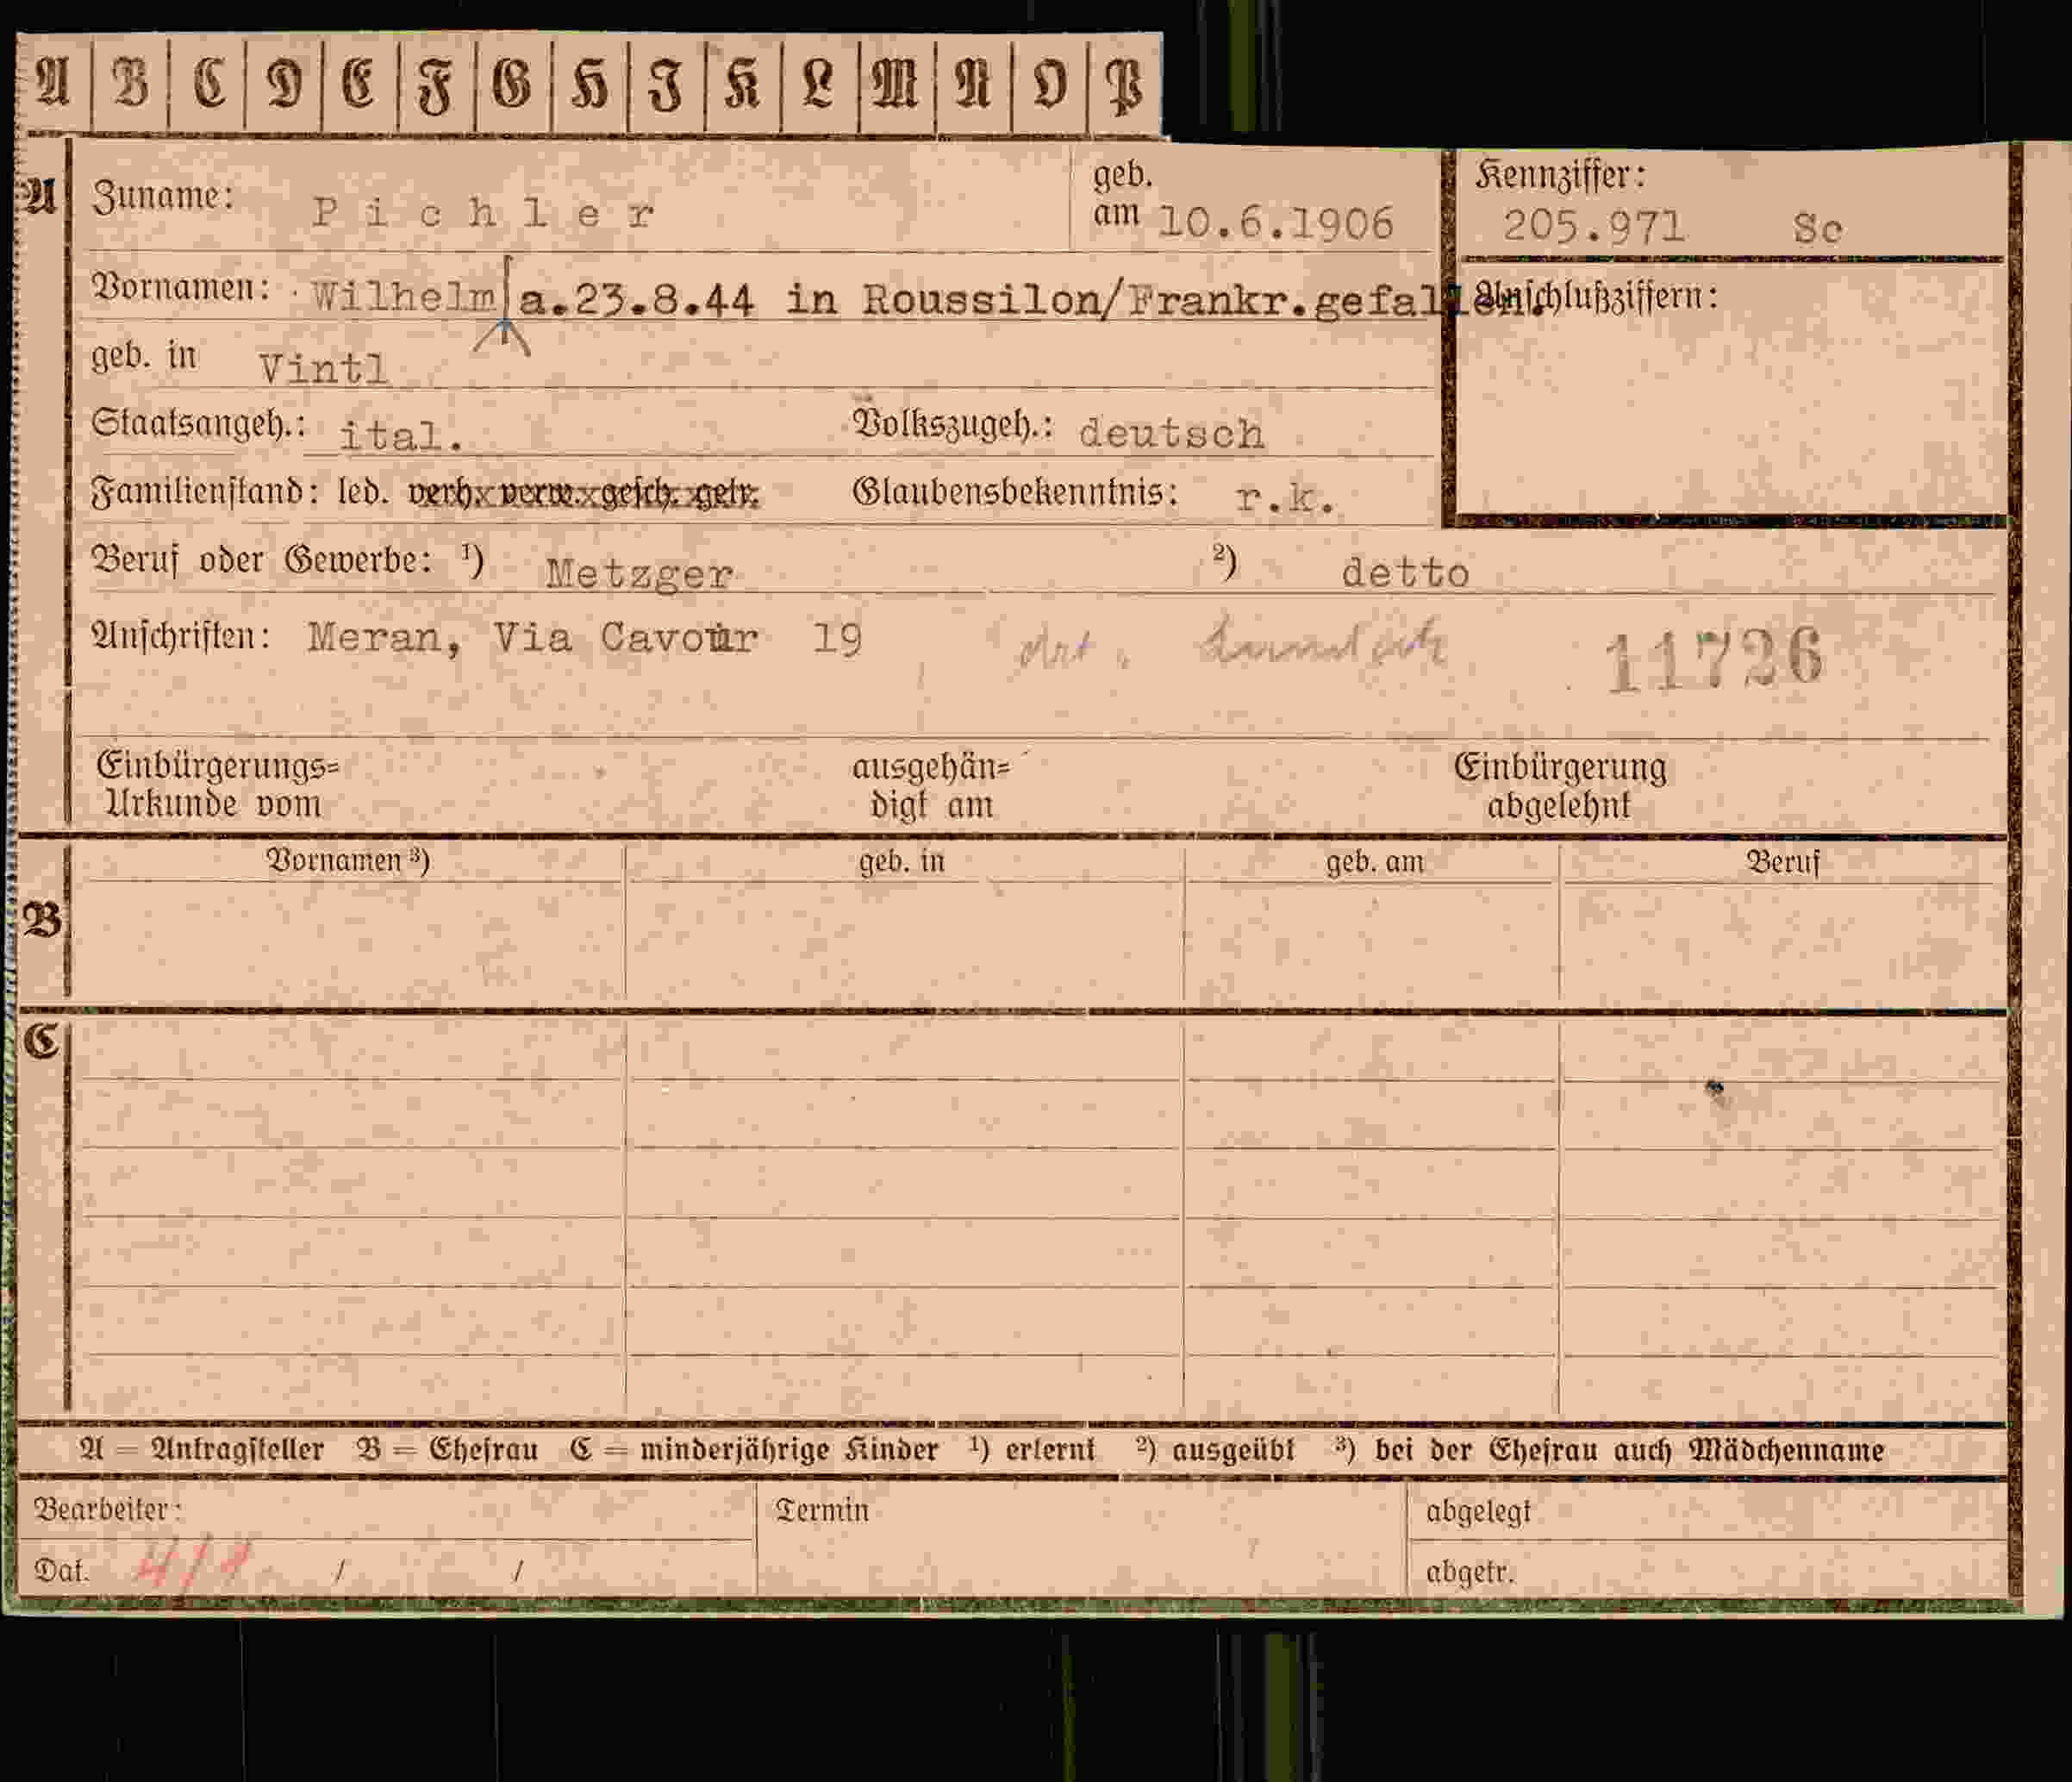 A B C D E F G H I K L M N O P
A Zuname: Pichler geb. am 10.6.1906 Kennziffer: 205.971 Sc
Vornamen: Wilhelm a.23.8.44 in Roussilon/Frankr.gefallen. Anschlußziffern:
geb. in Vintl
Staatsangeh.: ital. Volkszugeh.: deutsch
Familienstand: led. verh. verw. gesch. getr. Glaubensbekenntnis: r.k.
Beruf oder Gewerbe: ¹) Metzger ²) detto
Anschriften: Meran, Via Cavour 19 11726
Einbürgerungs= ausgehän= Einbürgerung
Urkunde vom digt am abgelehnt
Vornamen ³) geb. in geb. am Beruf
B
C
A = Antragsteller B = Ehefrau C = minderjährige Kinder ¹) erlernt ²) ausgeübt ³) bei der Ehefrau auch Mädchenname
Bearbeiter: Termin abgelegt
Dat. / / abgetr.